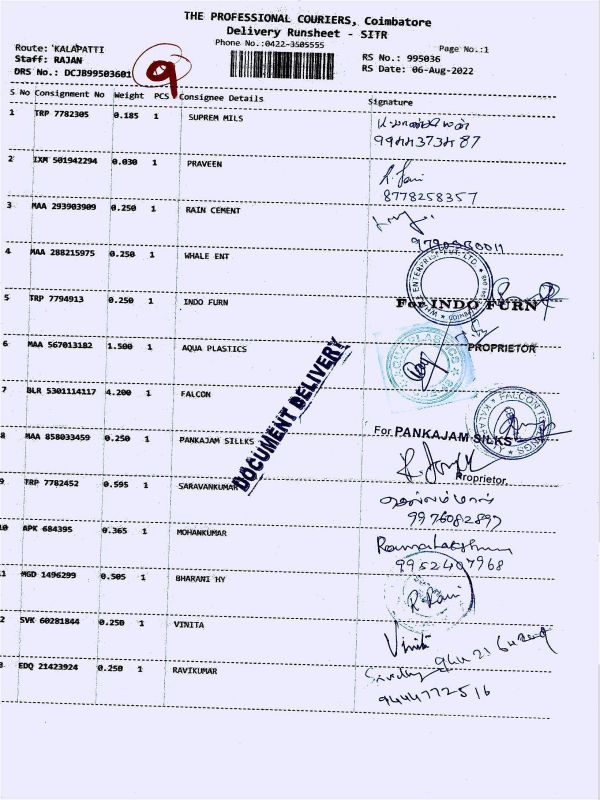 THE PROFESSIONAL COURIERS, Coimbatore
Delivery Runsheet - SITR
Phone No.:0422-3505555
Page No.:1
Route: KALAPATTI
Staff: RAJAN
DRS No.: DCJB99503601
9
RS No.: 995036
RS Date: 06-Aug-2022
S No Consignment No Weight PCS Consignee Details Signature
1 TRP 7782305 0.185 1 SUPREM MILS
2 IXM 501942294 0.030 1 PRAVEEN
8778258357
3 MAA 293903909 0.250 1 RAIN CEMENT
4 MAA 288215975 0.250 1 WHALE ENT
5 TRP 7794913 0.250 1 INDO FURN
For INDO FURN
PROPRIETOR
6 MAA 567013182 1.500 1 AQUA PLASTICS
AQUA PLASTICS
DOCUMENT DELIVERY
7 BLR 5301114117 4.200 1 FALCON
8 MAA 858033459 0.250 1 PANKAJAM SILLKS
For PANKAJAM SILKS
Proprietor
9 TRP 7782452 0.595 1 SARAVANKUMAR
9976082897
10 APK 684395 0.365 1 MOHANKUMAR
9952407968
11 MGD 1496299 0.505 1 BHARANI HY
R. Rani
2 SVK 60281844 0.250 1 VINITA
Vinita
3 EDQ 21423924 0.250 1 RAVIKUMAR
9444772516